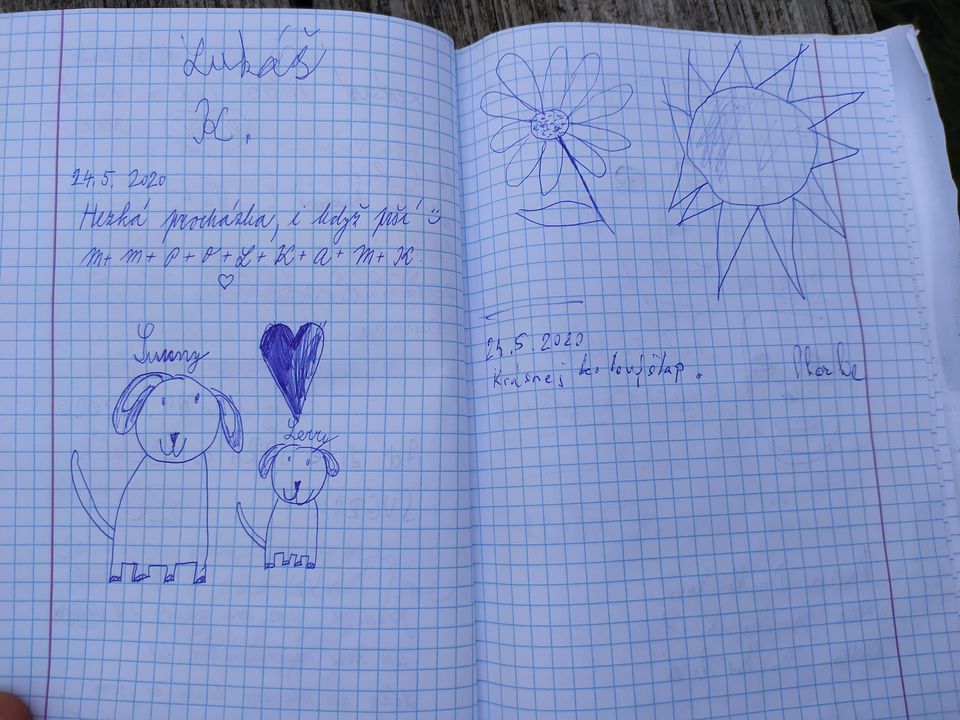 Lukáš
K.
24.5. 2020
Hezká procházka, i když prší
M + M + P + O + L + K + A + M + K.
Sunny
Lerry
25.5.2020
Krásnej